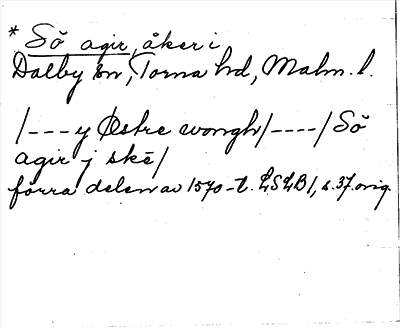 * Sö agir, åker i
Dalby sn, Torna hd, Malm. l.
/---y Østre wongh/----/Sö
agir j skē/
förra delen av 1570-t. LSLB 1, s. 37. orig.